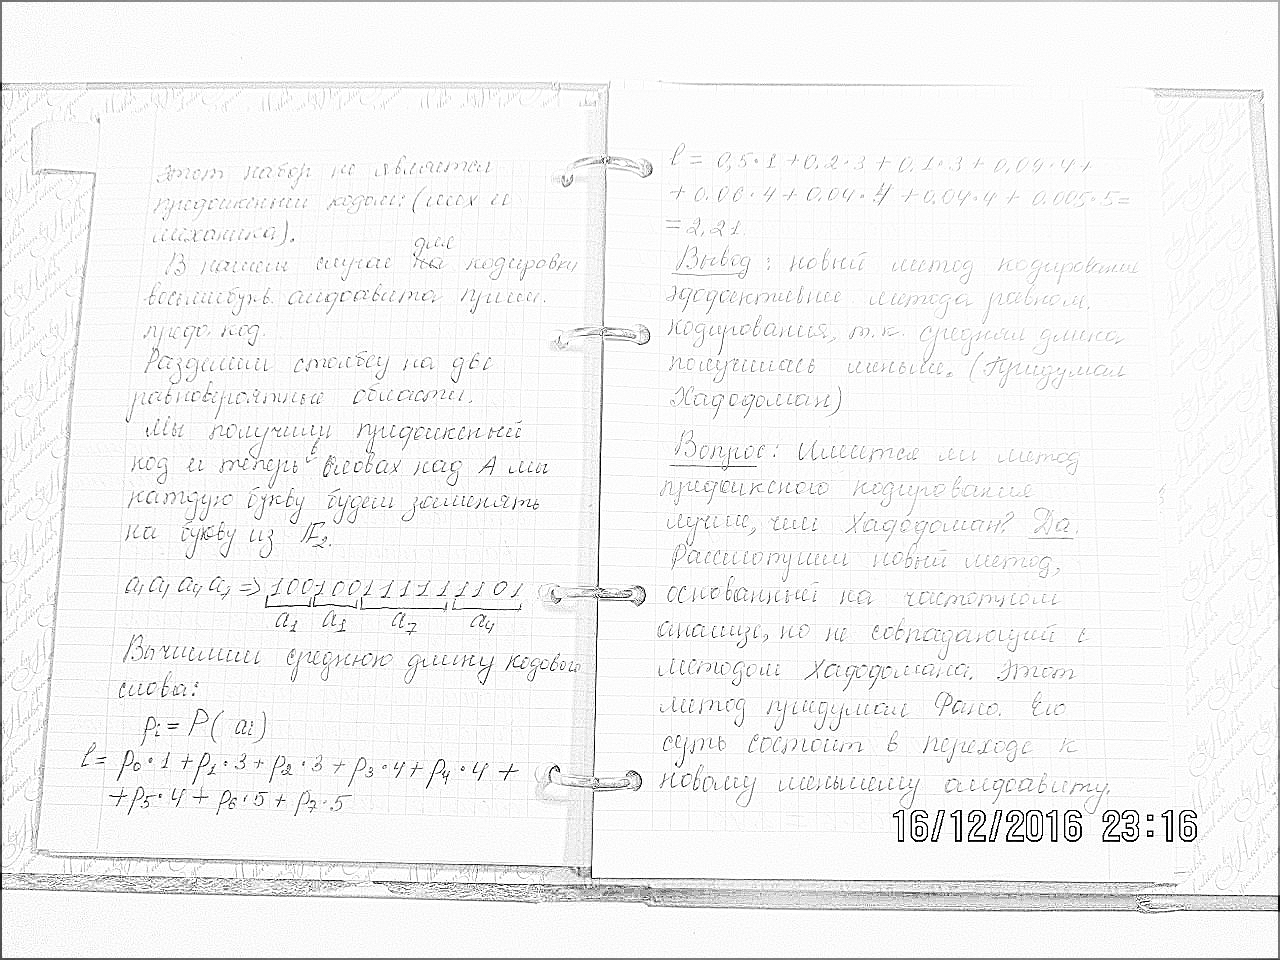 Этот набор не является
префиксным кодом: (мех и
механика).
для
В нашем случае на кодировки
восьмибукв. алфавита прим.
преф. код.
Разделим столбец на две
равновероятные области.
Мы получили префиксный
код и теперь в словах над A мы
каждую букву будем заменять
на букву из F₂.
a₁a₁a₇a₄ => 100 100 11111 1101
a₁ a₁ a₇ a₄
Вычислим среднюю длину кодового
слова:
pᵢ = P(aᵢ)
l = p₀·1 + p₁·3 + p₂·3 + p₃·4 + p₄·4 +
+ p₅·4 + p₆·5 + p₇·5
l = 0,5·1 + 0,2·3 + 0,1·3 + 0,09·4 +
+ 0.06·4 + 0,04·4 + 0,04·4 + 0.005·5 =
= 2,21.
Вывод: новый метод кодирования
эффективнее метода равном.
кодирования, т.к. средняя длина
получилась меньше. (Придумал
Хаффман)
Вопрос: Имеется ли метод
префиксного кодирования
лучше, чем Хаффман? Да.
Рассмотрим новый метод,
основанный на частотном
анализе, но не совпадающий с
методом Хаффмана. Этот
метод придумал Фано. Его
суть состоит в переходе к
новому меньшему алфавиту.
16/12/2016 23:16